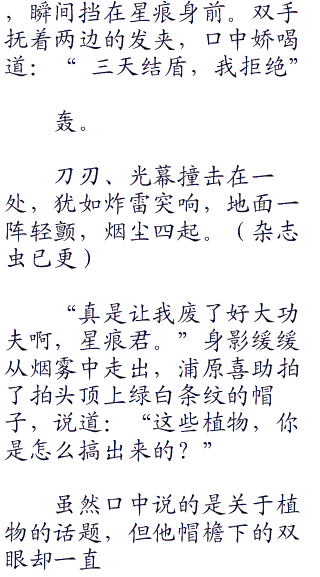 ，瞬间挡在星痕身前。双手
抚着两边的发夹，口中娇喝
道：“ 三天结盾，我拒绝”
轰。
刀刃、光幕撞击在一
处，犹如炸雷突响，地面一
阵轻颤，烟尘四起。（杂志
虫已更）
“真是让我废了好大功
夫啊，星痕君。”身影缓缓
从烟雾中走出，浦原喜助拍
了拍头顶上绿白条纹的帽
子，说道：“这些植物，你
是怎么搞出来的？”
虽然口中说的是关于植
物的话题，但他帽檐下的双
眼却一直